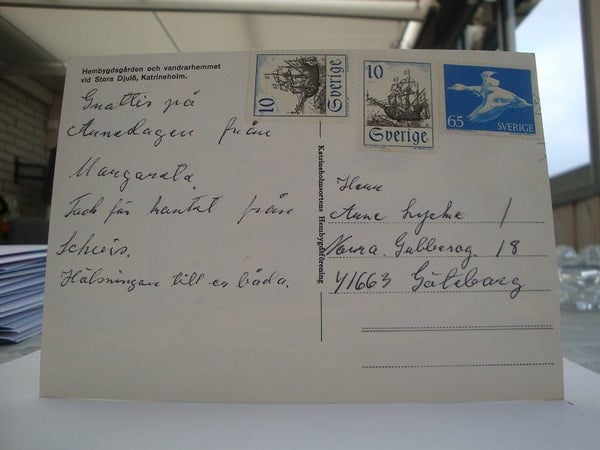 Hembygdsgården och vandrarhemmet
vid Stora Djulö, Katrineholm.
Grattis på
Annedagen från
Margareta.
Tack för kortet från
Hälsningar till er båda.
Katrineholmsortens Hembygdsförening
10
Sverige
10
Sverige
65 SVERIGE
Anne
Norra. Gubberog. 18
41663 Göteborg